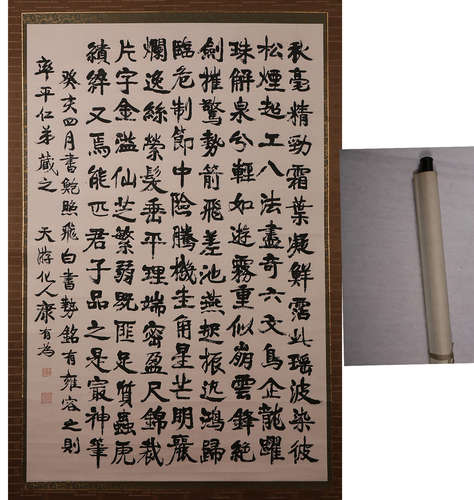 秋毫精勁霜葉凝鮮霑此瑶波染彼
松煙超工八法盡奇六文鳥企龍躍
珠解泉分輕如遊霧重似崩雲鋒絶
劍摧驚勢箭飛差池燕起振迅鴻歸
臨危制節中險騰機生角星芒明麗
爛逸絲縈髮垂平理端密盈尺錦裁
片字金溢仙芝繁弱既匪足質蟲虎
績綷又焉能匹君子品之是最神筆
癸亥四月書鮑照飛白書勢銘有雍容之則
率平仁弟藏之 天游化人康有為